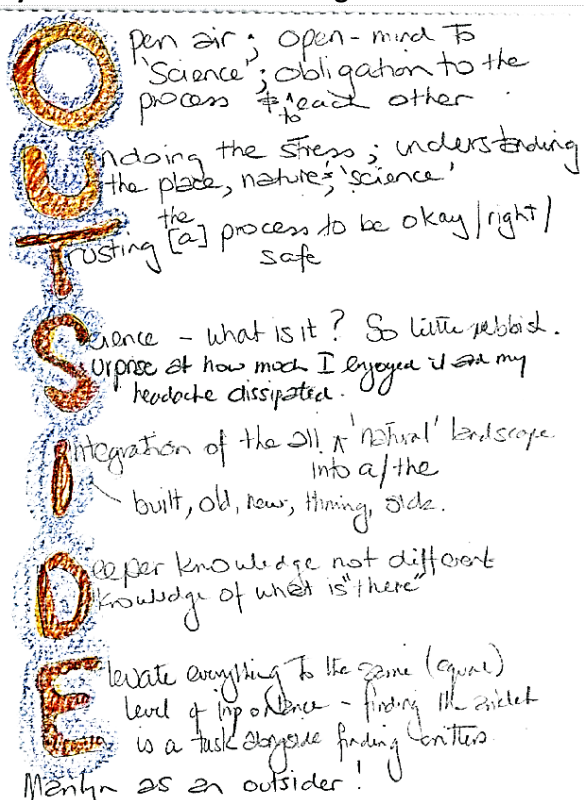 Open air; open-mind to
'Science'; obligation to the
process & to each other.
Undoing the stress; understanding
the place, nature; 'science'
Trusting [a] the process to be okay/right/
safe
Science – what is it? So little rubbish.
Surprise at how much I enjoyed it and my
headache dissipated.
Integration of the all 'natural' landscape
into a/the
built, old, new, thriving, sick.
Deeper knowledge not different
knowledge of what is "there"
Elevate everything to the same (equal)
level of importance – finding the
is a task alongside finding critters
Marilyn as an outsider!